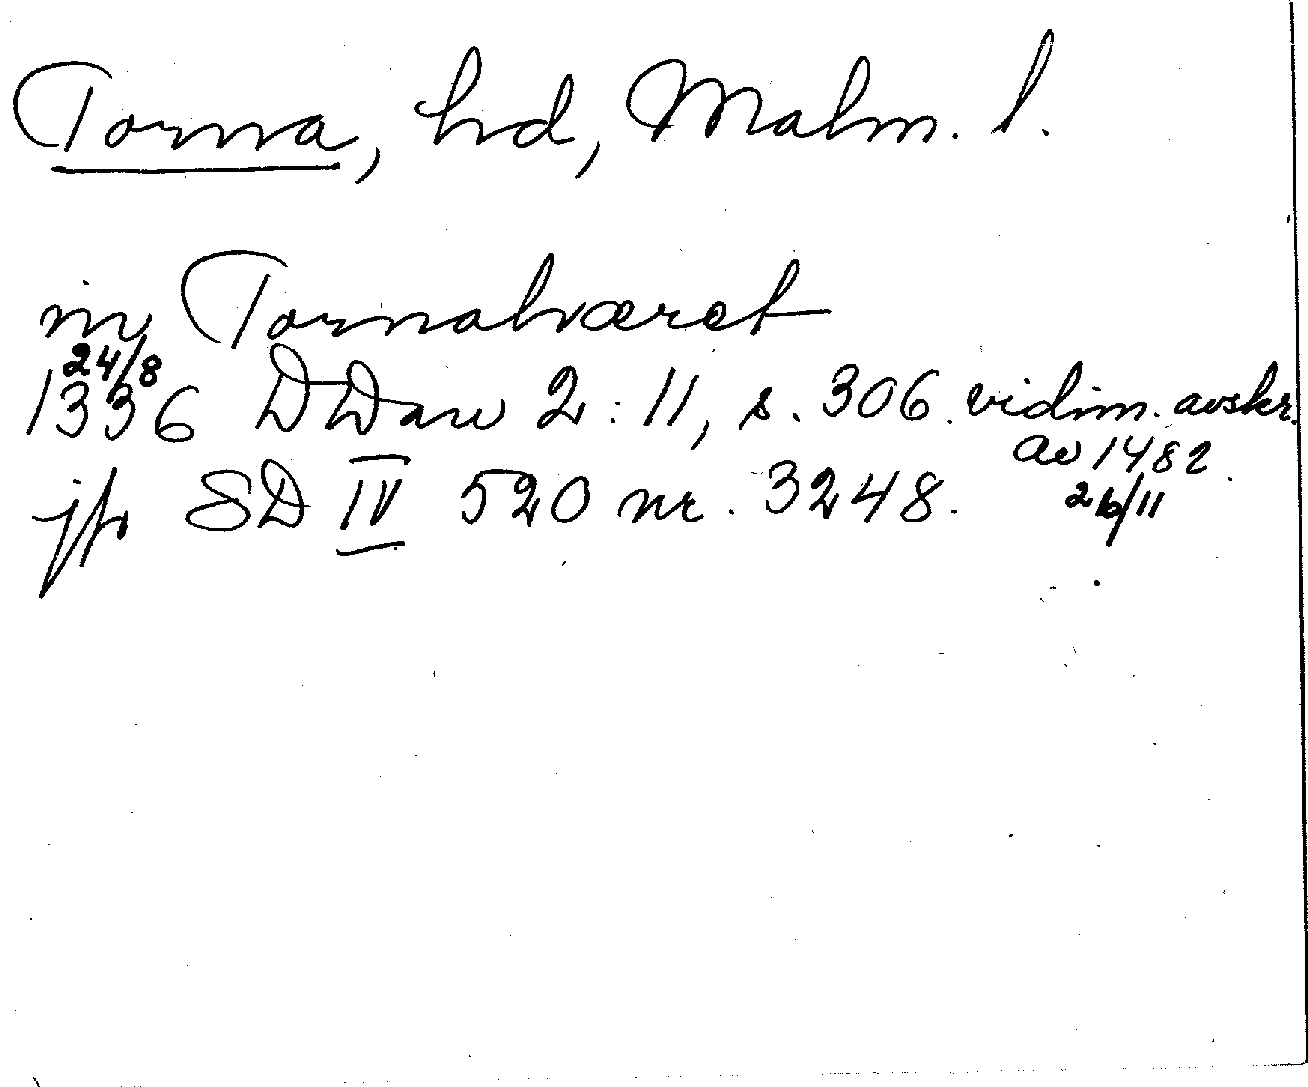 Torna, hd, Malm. l.
in Tornahæret
24/8
1336 DDan 2:11, s. 306. vidim. avskr.
av 1482
26/11
jfr SD IV 520 nr. 3248.